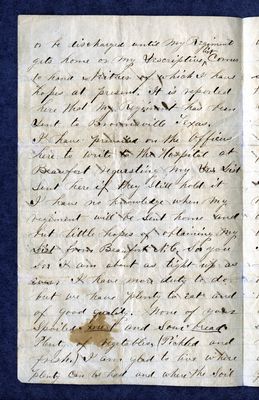 or be discharged until my Regiment
gets home or my Descriptive list Comes
to hand neither of which I have
hopes of at present. It is reported
here that my Regiment had been
Sent to Brownsville Texas.
I have prevailed on the Officer
here to write to the Hospital at
Beaufort requesting my Des List
Sent here if they Still hold it
I have no knowledge when my
regiment will be Sent home and
but little hopes of obtaining my
List from Beaufort N.C. So you
See I am about as tight up as
ever I have more duty to do
but we have plenty to eat and
of good quality. None of your
Spoiled meat and Sour bread
Plenty of vegetables Pickled and
fresh. I am glad to live where
plenty can be had and where the Soil